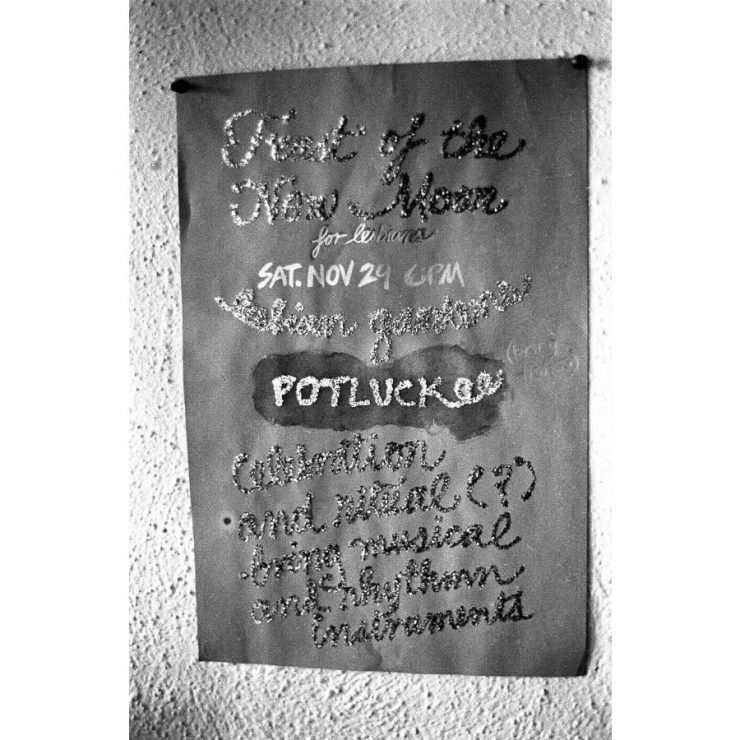 Feast of the
New Moon
for lesbians
SAT. NOV 29 6PM
lesbian gardens
POTLUCK
Celebration
and ritual (?)
bring musical
and rhythmn
instruments